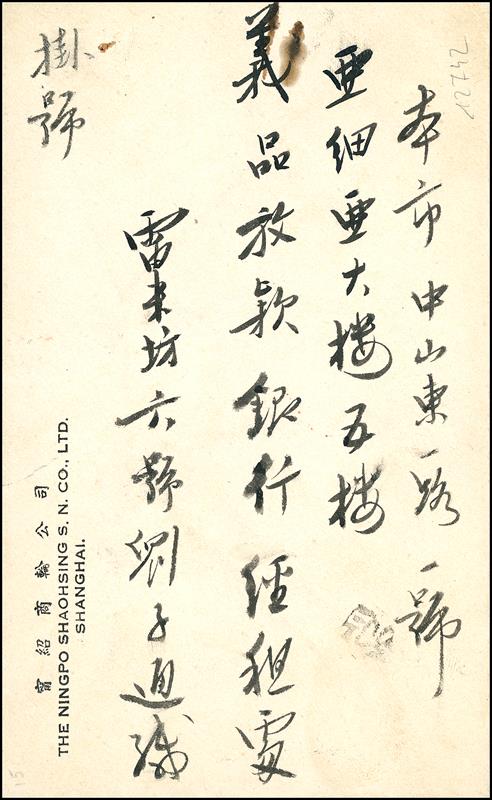 12742
本市中山東一路一號
亞細亞大樓五樓
義品放款銀行經租處
雷米坊六號劉子通緘
掛號
甯紹商輪公司
THE NINGPO SHAOHSING S. N. CO., LTD.
SHANGHAI.
15